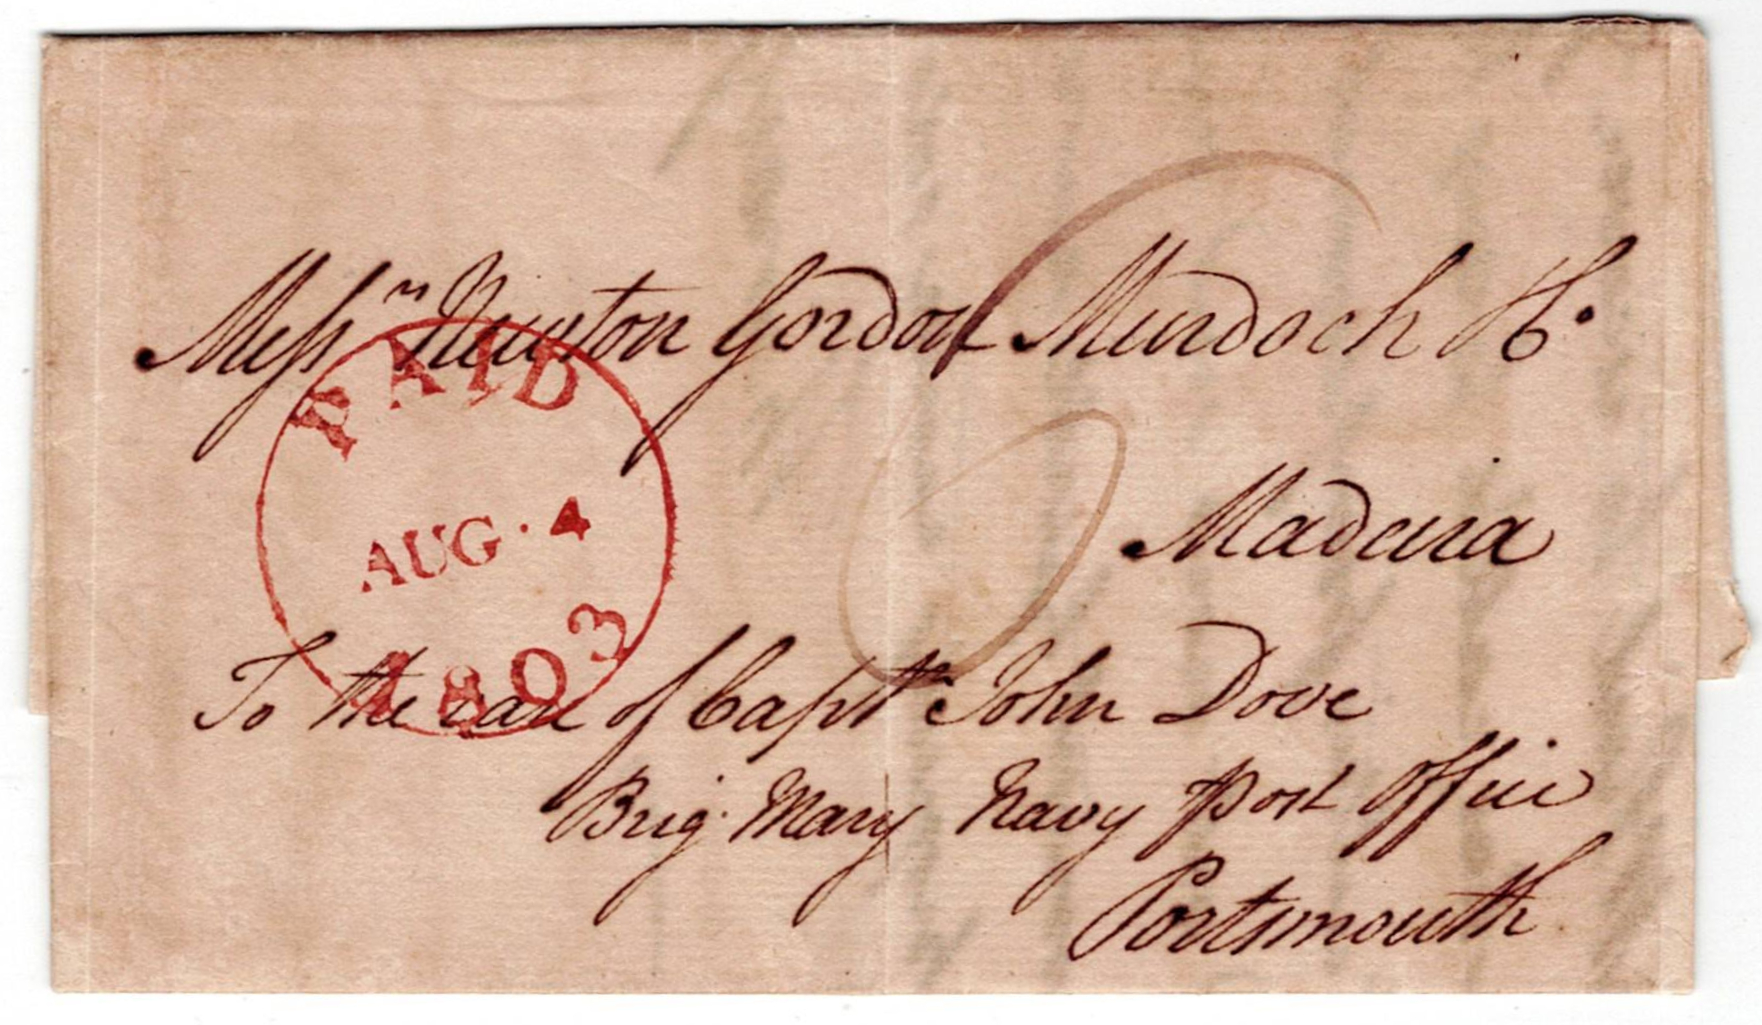 Messrs Newton Gordon Murdoch & Co.
Madeira
PAID
AUG · 4
1803
To the care of Captn John Dove
Brig. Mary Navy Post Office
Portsmouth